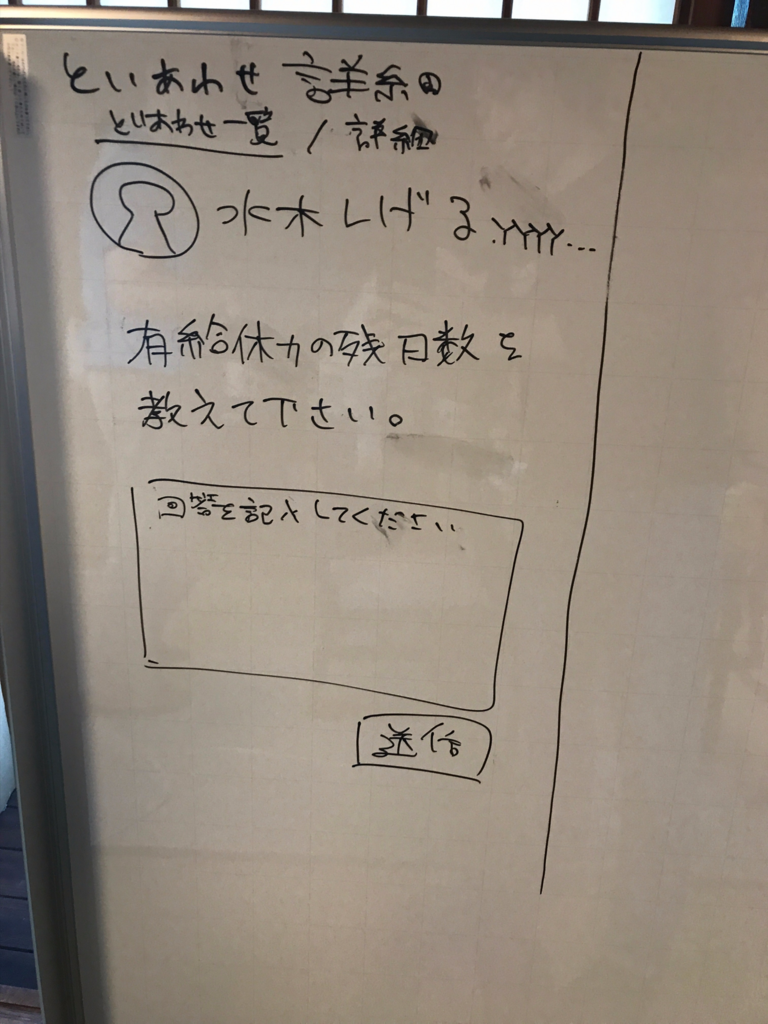 といあわせ 詳細
といあわせ一覧 / 詳細
水木しげる YYYY...
有給休カの残日数を
教えて下さい。
回答を記入してください
送信